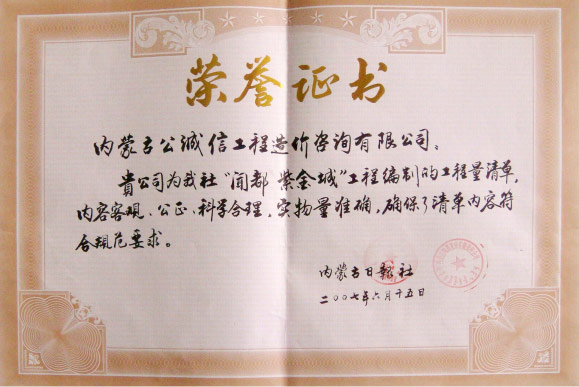 荣誉证书
内蒙古公诚信工程造价咨询有限公司。
贵公司为我社“闻都 紫金城”工程编制的工程量清单,
内容客观、公正、科学合理，实物量准确，确保了清单内容符
合规范要求。
内蒙古日報社
二〇〇七年六月十五日